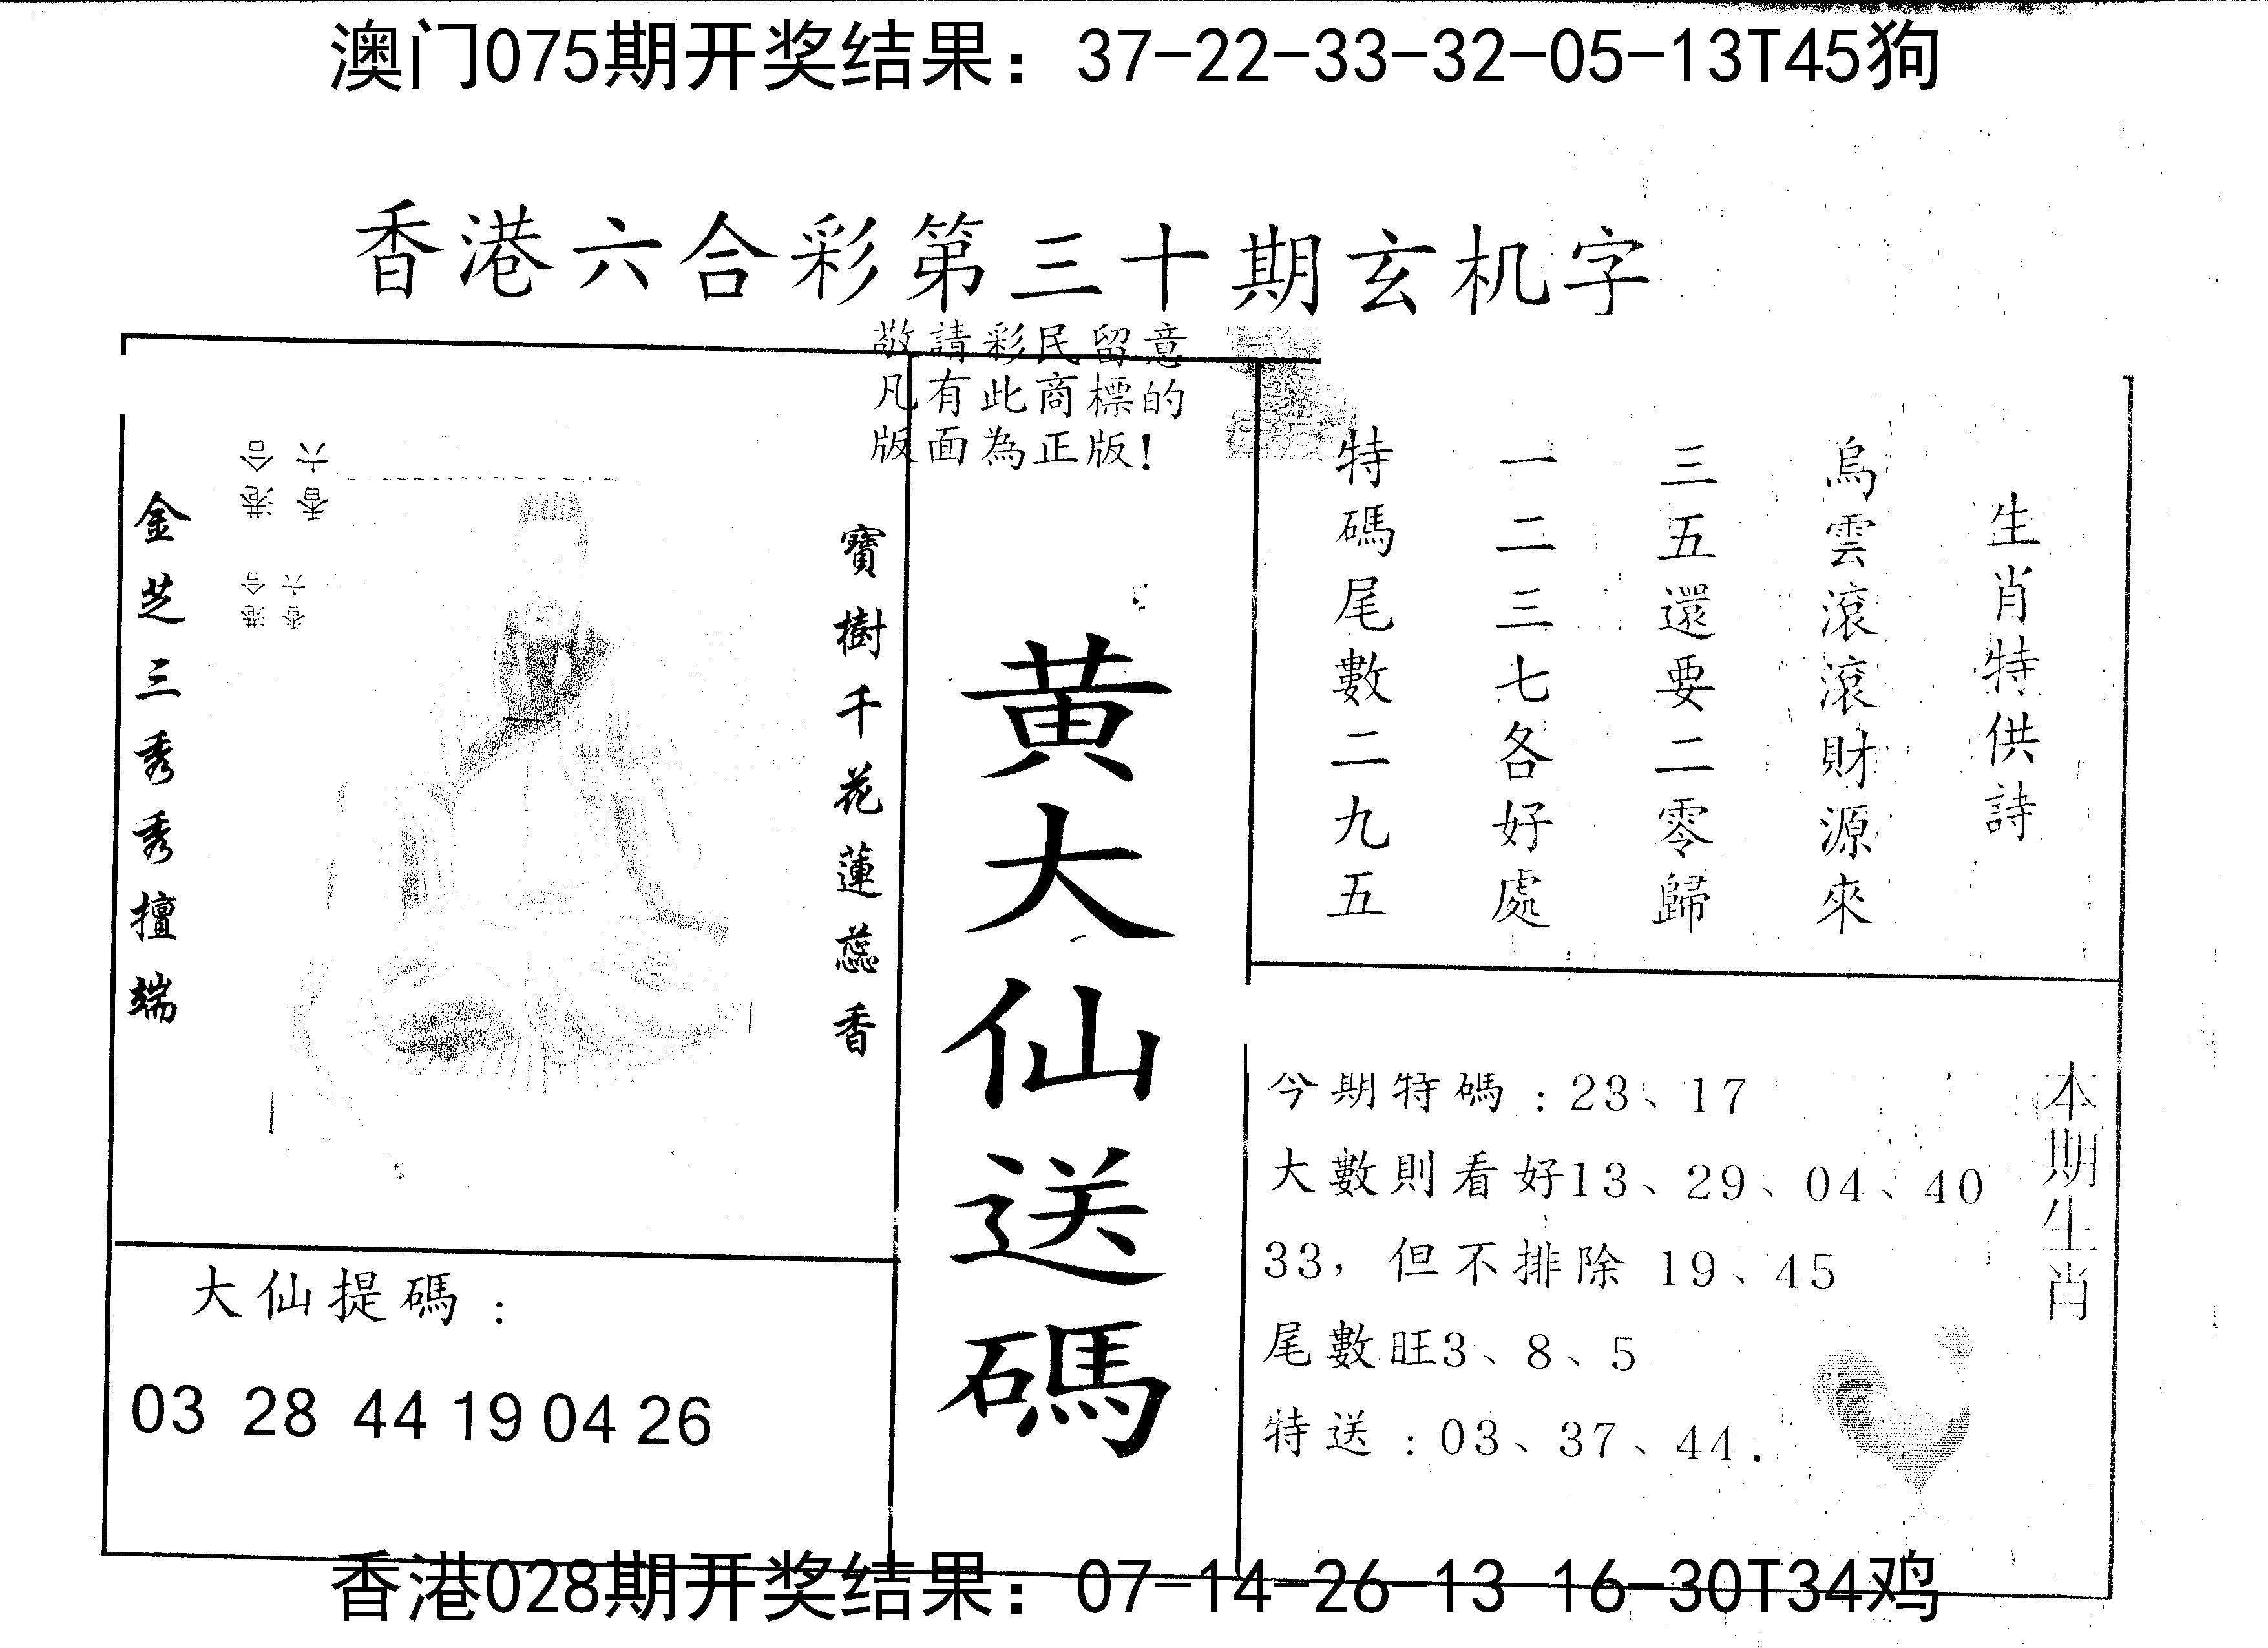 澳门075期开奖结果：37-22-33-32-05-13T45狗
香港六合彩第三十期玄机字
敬請彩民留意
凡有此商標的
版面為正版！
生肖特供詩
烏雲滾滾財源來
三五還要二零歸
一二三七各好處
特碼尾數二九五
黄大仙送碼
寶樹千花蓮蕊香
金芝三秀秀擅端
六合
香港
六合
香港
大仙提碼：
03 28 44 19 04 26
本期生肖
今期特碼：23、17
大數則看好13、29、04、40
33，但不排除 19、45
尾數旺3、8、5
特送：03、37、44.
香港028期开奖结果：07-14-26-13 16-30T34鸡